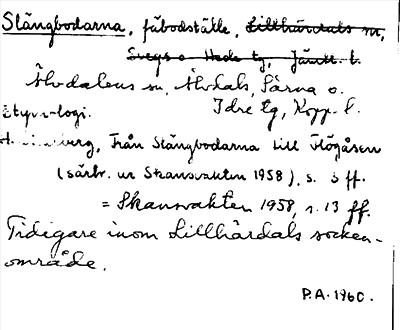 Slängbodarna, fäbodställe, Lillhärdals sn,
Svegs o. Hede tg, Jämtl. l.
Älvdalens sn, Älvdals, Särna o.
Idre tg, Kopp. l.
Etymologi.
Från Slängbodarna till Högåsen
(särtr. ur Skansvakten 1958), s. 3 ff.
= Skansvakten 1958, s. 13 ff.
Tidigare inom Lillhärdals socken-
område.
P.A. 1960.